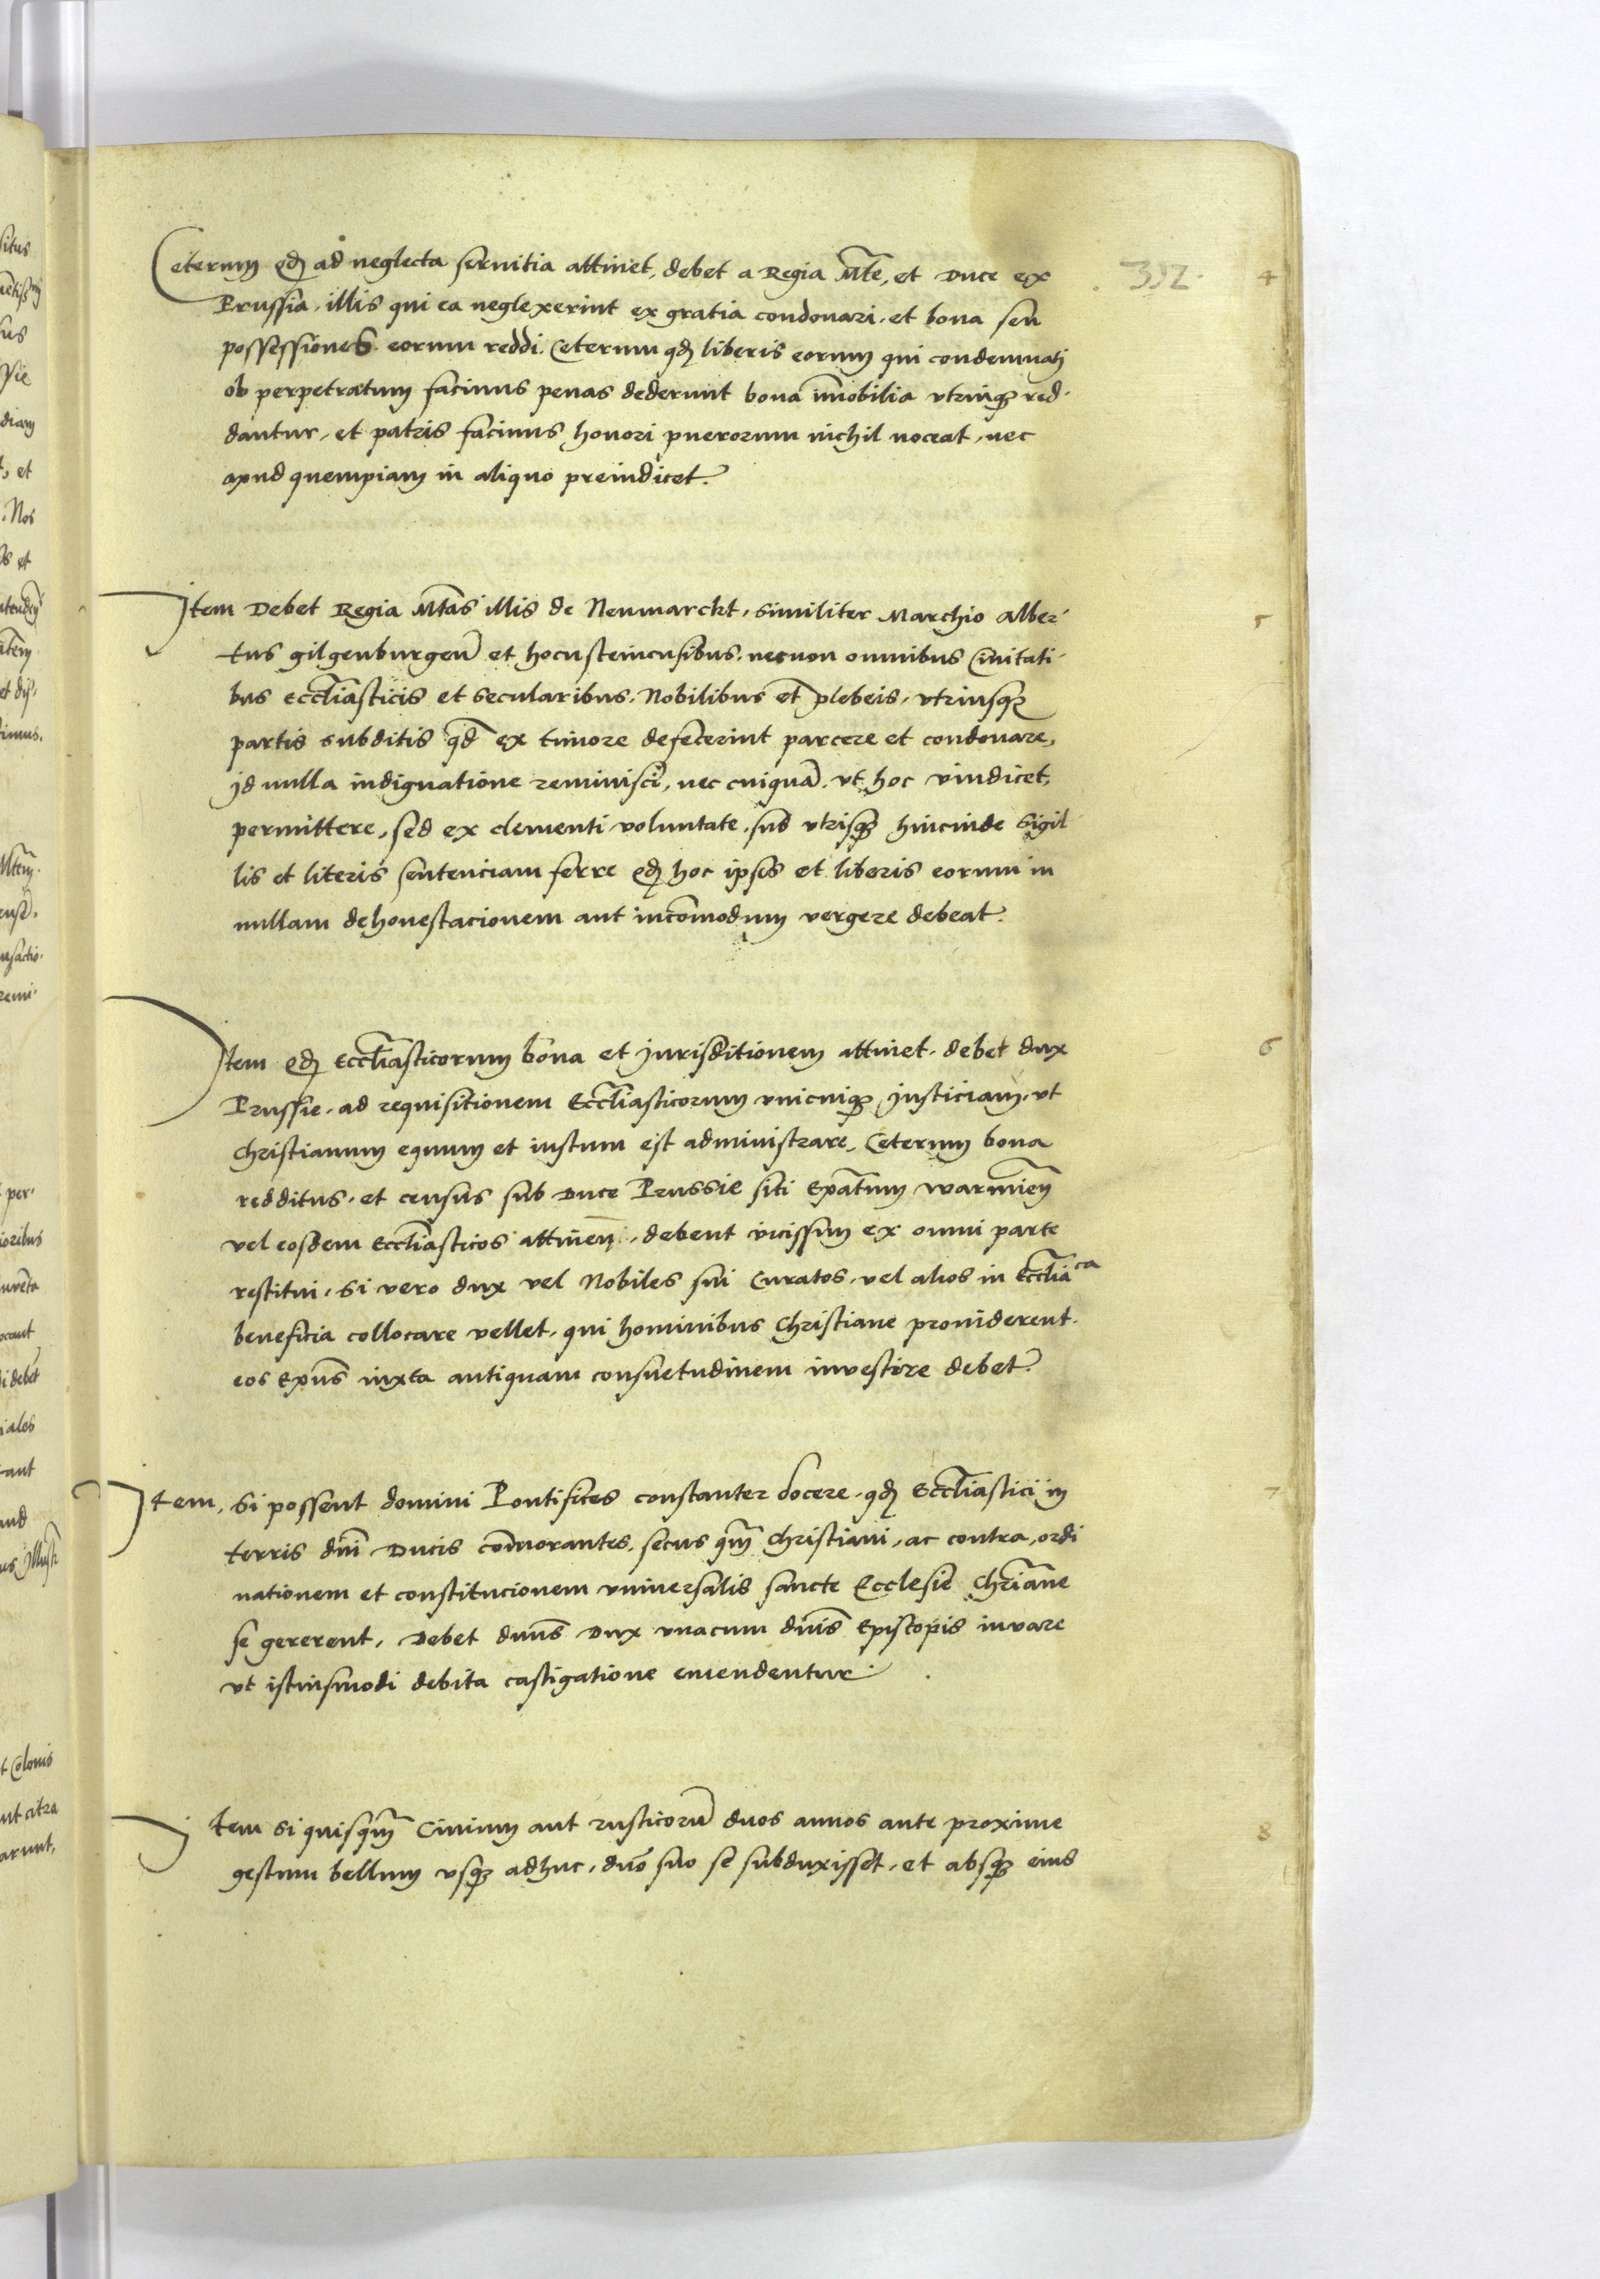 Ceterum qđ ad neglecta servitia attinet, debet a Regia Mt̃e, et Duce ex
Prussia, illis qui ea neglexerint ex gratia condonari, et bona seu
possessiones eorum reddi. Ceterum qđ liberis eorum qui condemnati
ob perpetratum facinus penas dederunt bona im̃obilia utrinq3 red-
dantur, et patris facinus honori puerorum nichil noceat, nec
apud quempiam in aliquo preiudicet.
Item Debet Regia Mt̃as illis de Neumarckt, similiter Marchio Alber-
tus gilgenburgeñ et hocnsteincnsibus, necnon omnibus Civitati-
bus Eccl̃iasticis et Secularibus, Nobilibus et plebeis, utriusq3
partis subditis qđ ex timore defecerint parcere et condonare,
id nulla indignatione reminisci, nec cuiquã, ut hoc vindicet,
permittere, sed ex clementi voluntate, sub utrisq3 hincinde sigil
lis et literis sentenciam ferre qđ hoc ipsis et liberis eorum in
nullam dehonestacionem aut incõmodum vergere debeat.
Item qđ Eccl̃iasticorum bona et Jurisditionem attinet, debet dux
Prussie, ad requisitionem Eccl̃iasticorum unicuiq3 Justiciam, ut
Christianum equum et iustum est administrare, Ceterum bona
redditus, et census sub Duce Prussie siti Ep̃atum warmieñ
vel eosdem Eccl̃iasticos attineñ, debent vicissim ex omni parte
restitui, Si vero dux vel Nobiles sui Curatos, vel alios in Eccl̃ia ca
beneficia collocare vellet, qui hominibus Christiane providerent.
eos Ep̃us iuxta antiquam consuetudinem investire debet.
Item, Si possent domini Pontifices constanter docere, qđ Eccl̃iastici in
terris dñi Ducis cõmorantes, secus q̃m Christiani, ac contra, ordi
nationem et constitucionem universalis sancte Ecclesie Chr̃iane
se gererent, Debet dñus Dux unacum dñis Episcopis iuvare
ut istiusmodi debita castigatione emendentur.
Item Si quisq̃m Civium aut rusticorũ duos annos ante proxime
gestum bellum usq3 adhuc, dño suo se subduxisset, et absq3 eius
392.
4
5
6
7
8